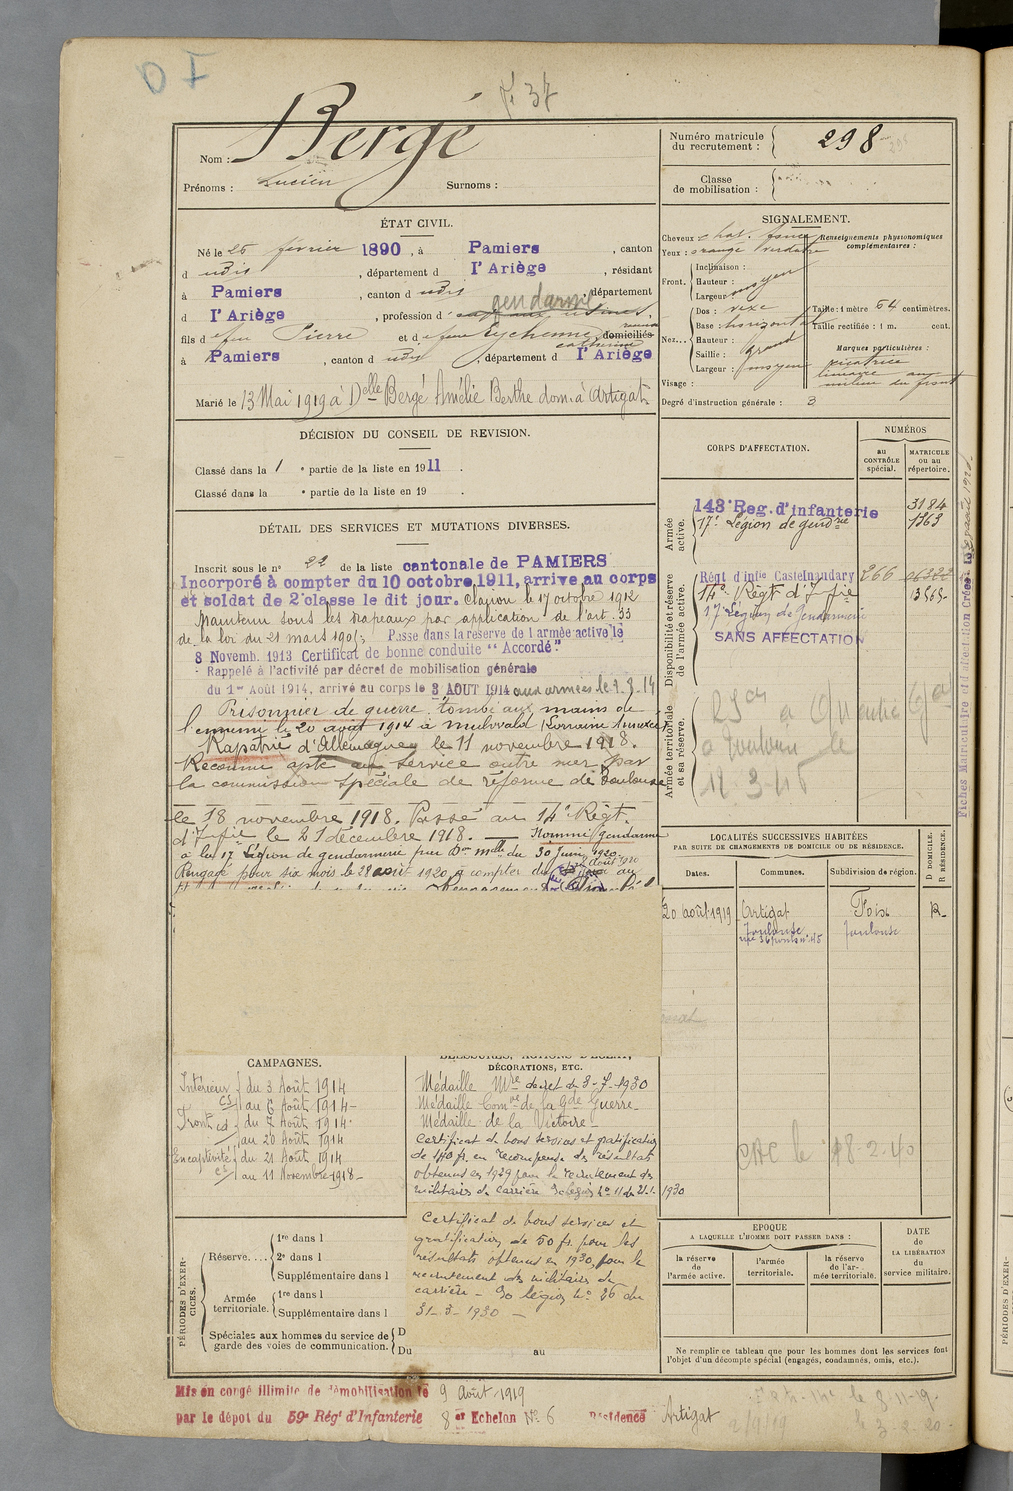 D I
f° 37
Nom : Bergé
Prénoms : Lucien Surnoms :
Numéro matricule du recrutement : 298
Classe de mobilisation :
ÉTAT CIVIL.
Né le 25 février 1890, à Pamiers, canton
d udis, département d l'Ariège, résidant
à Pamiers, canton d udis, département
d l'Ariège, profession d gendarme
fils d feu Pierre et d feue Eychenne Catherine domiciliés
à Pamiers, canton d udis, département d l'Ariège
Marié le 13 Mai 1919 à Delle Bergé Amélie Berthe dom. à Artigat
SIGNALEMENT.
Cheveux chat. foncé
Yeux : orange verdâtre
Renseignements physionomiques complémentaires :
Front. Inclinaison :
Hauteur : moyen
Largeur
Nez... Dos : vexe
Base : horizontal
Hauteur :
Saillie : grand
Largeur : moyen
Taille : 1 mètre 64 centimètres.
Taille rectifiée : 1 m. cent.
Marques particulières :
cicatrice
linéaire au
milieu du front
Visage :
Degré d'instruction générale : 3
DÉCISION DU CONSEIL DE REVISION.
Classé dans la 1e partie de la liste en 1911.
Classé dans la e partie de la liste en 19 .
DÉTAIL DES SERVICES ET MUTATIONS DIVERSES.
Inscrit sous le n° 22 de la liste cantonale de PAMIERS
Incorporé à compter du 10 octobre 1911, arrive au corps
et soldat de 2e classe le dit jour. Clairon le 17 octobre 1912
Maintenu sous les drapeaux par application de l'art. 33
de la loi du 21 mars 1905; Passé dans la réserve de l'armée active le
8 Novemb. 1913 Certificat de bonne conduite "Accordé."
Rappelé à l'activité par décret de mobilisation générale
du 1er Août 1914, arrivé au corps le 3 AOUT 1914 aux armées le
Prisonnier de guerre tombé aux mains de
l'ennemi le 20 août 1914 à Mulwald (Lorraine Annexée)
Rapatrié d'Allemagne le 11 novembre 1918.
Reconnu apte au service outre mer par
la commission spéciale de réforme de Toulouse
le 18 novembre 1918. Passé au 14e Régt
d'Infie le 21 décembre 1918. — Nommé gendarme
à la 17e Légion de gendarmerie par Don mlle du 30 Juin 1920
Rengagé pour six mois le 28 août 1920 à compter du
CORPS D'AFFECTATION.
NUMÉROS
au CONTRÔLE spécial.
MATRICULE ou au répertoire.
Armée active.
143e Reg. d'infanterie 3184
17e Légion de gendrie 1363
Disponibilité et réserve de l'armée active.
Régt d'infie Castelnaudary 266
14e Régt d'Infie
17e Légion de Gendarmerie
SANS AFFECTATION
Armée territoriale et sa réserve.
à Toulouse le
LOCALITÉS SUCCESSIVES HABITÉES
PAR SUITE DE CHANGEMENTS DE DOMICILE OU DE RÉSIDENCE.
Dates. Communes. Subdivision de région. D DOMICILE. R RÉSIDENCE.
20 août 1919 Artigat Foix R.
Toulouse Toulouse
CAMPAGNES.
Intérieur CS du 3 Août 1914
au 6 Août 1914
Front CD du 7 Août 1914
au 20 Août 1914
En captivité CS du 21 Août 1914
au 11 Novembre 1918
BLESSURES, ACTIONS D'ÉCLAT,
DÉCORATIONS, ETC.
Médaille Mre décret du 3-7-1930
Médaille Comve de la Gde Guerre
Médaille de la Victoire
Certificat de bons services et gratification
de 140 fr. en récompense des résultats
obtenus en 1929 pour le recrutement des
militaires de carrière
Certificat de bons services et
gratification de 50 fr. pour les
résultats obtenus en 1930, pour le
recrutement des militaires de
carrière
31-3-1930
CAC le 18-2-40
PÉRIODES D'EXERCICES.
Réserve.... 1re dans l
2e dans l
Supplémentaire dans l
Armée territoriale. 1re dans l
Supplémentaire dans l
Spéciales aux hommes du service de garde des voies de communication. D
Du au
EPOQUE
A LAQUELLE L'HOMME DOIT PASSER DANS :
la réserve de l'armée active.
l'armée territoriale.
la réserve de l'armée territoriale.
DATE de LA LIBÉRATION du service militaire.
Ne remplir ce tableau que pour les hommes dont les services font
l'objet d'un décompte spécial (engagés, condamnés, omis, etc.).
Mis en congé illimité de démobilisation le 9 Août 1919
par le dépôt du 59e Régt d'Infanterie 8e Echelon N° 6 Résidence Artigat